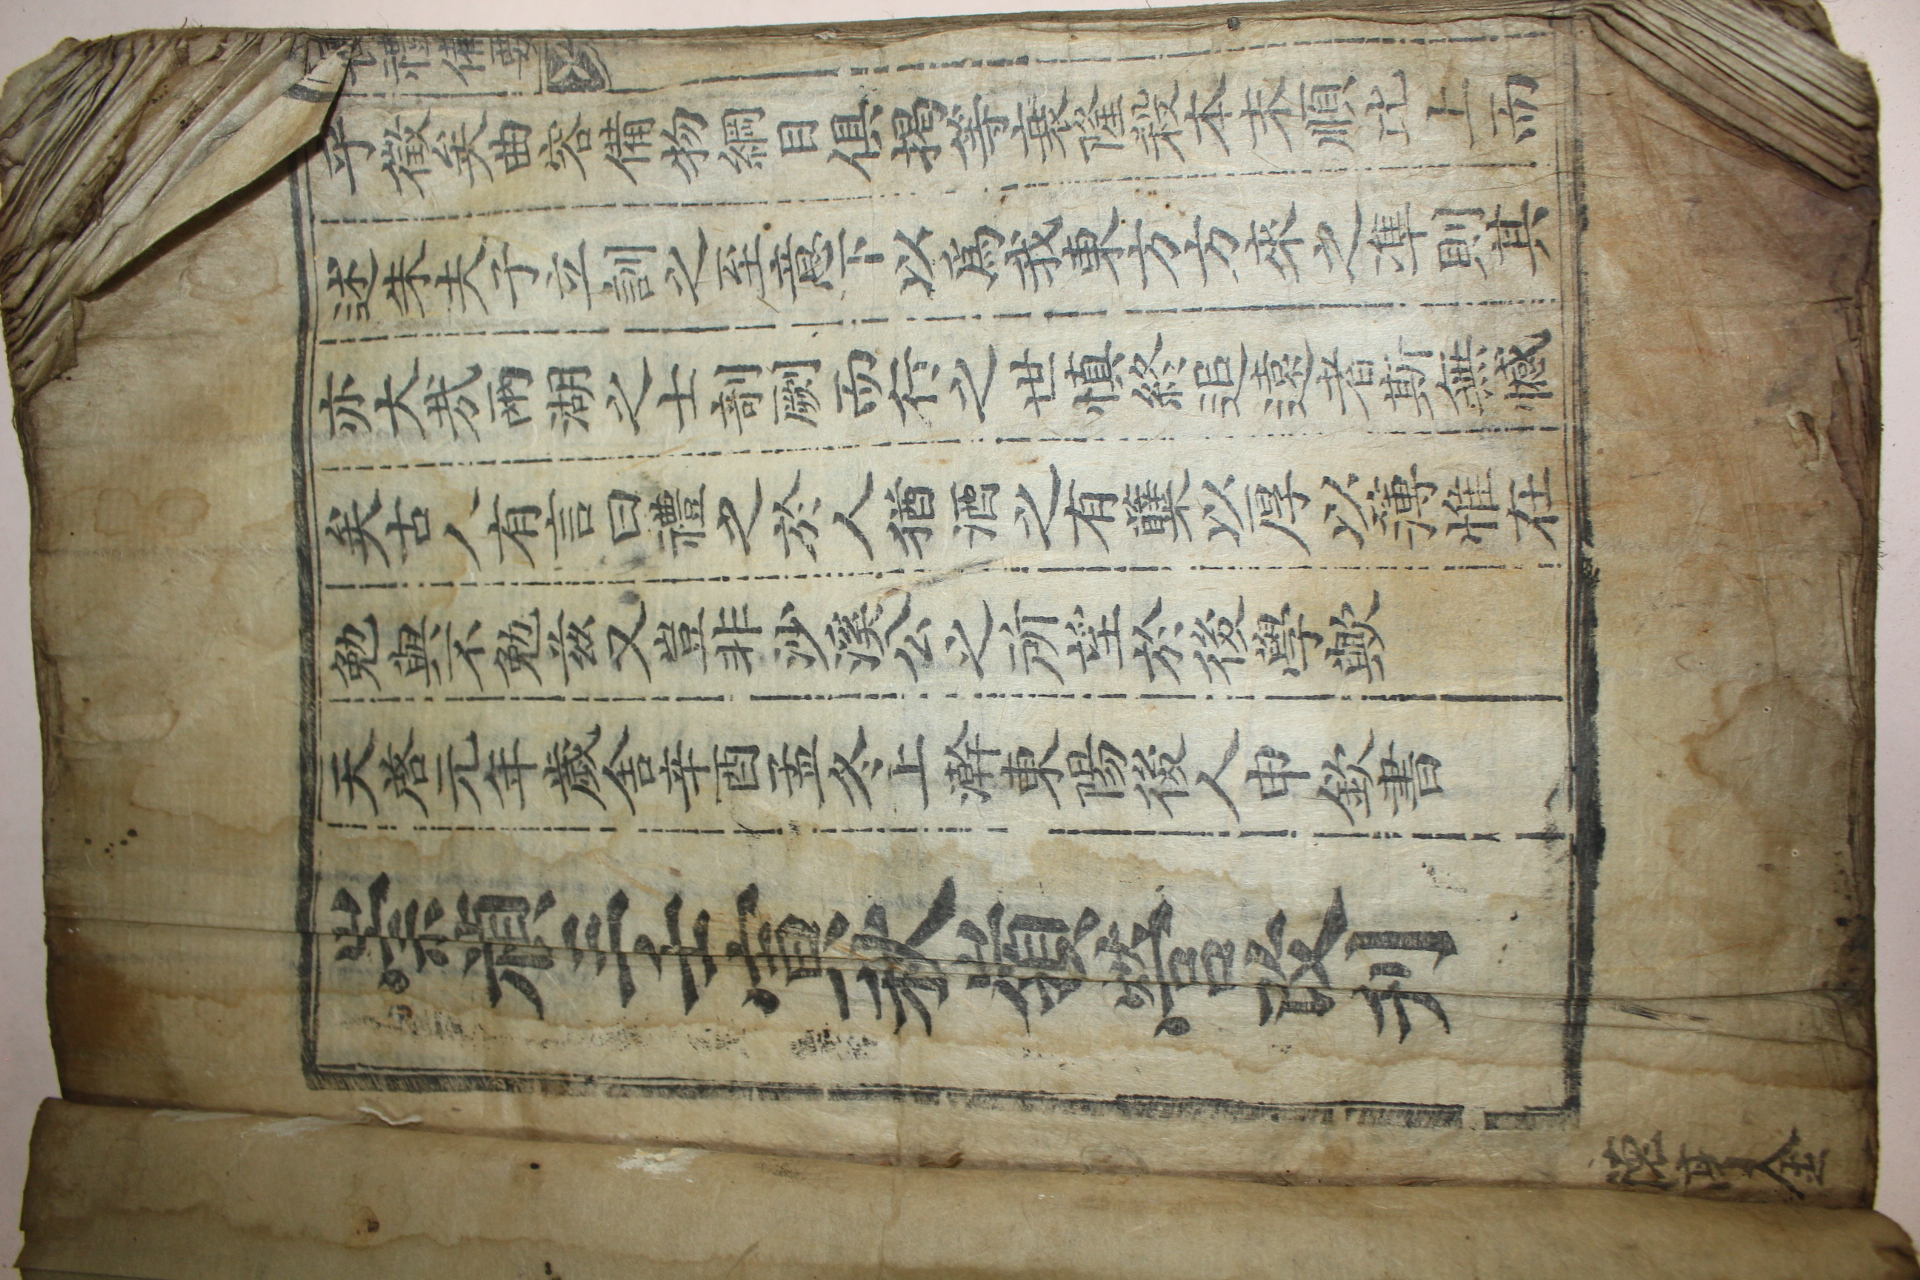 喪禮備要
乎徵矣曲容備物綱目俱揭等衰隆殺本末順比上而
述朱夫子立訓之至意下以爲我東方方來之準則其
亦大哉兩湖之士剞劂而行之世愼終追遠者斯無憾
矣古人有言曰禮之於人猶酒之有蘗以厚以薄惟在
勉與不勉玆又豈非沙溪公之所望於後學歟
天啓元年歲舍辛酉孟冬上澣東陽後人申欽書
崇禎三壬寅秋營改刊